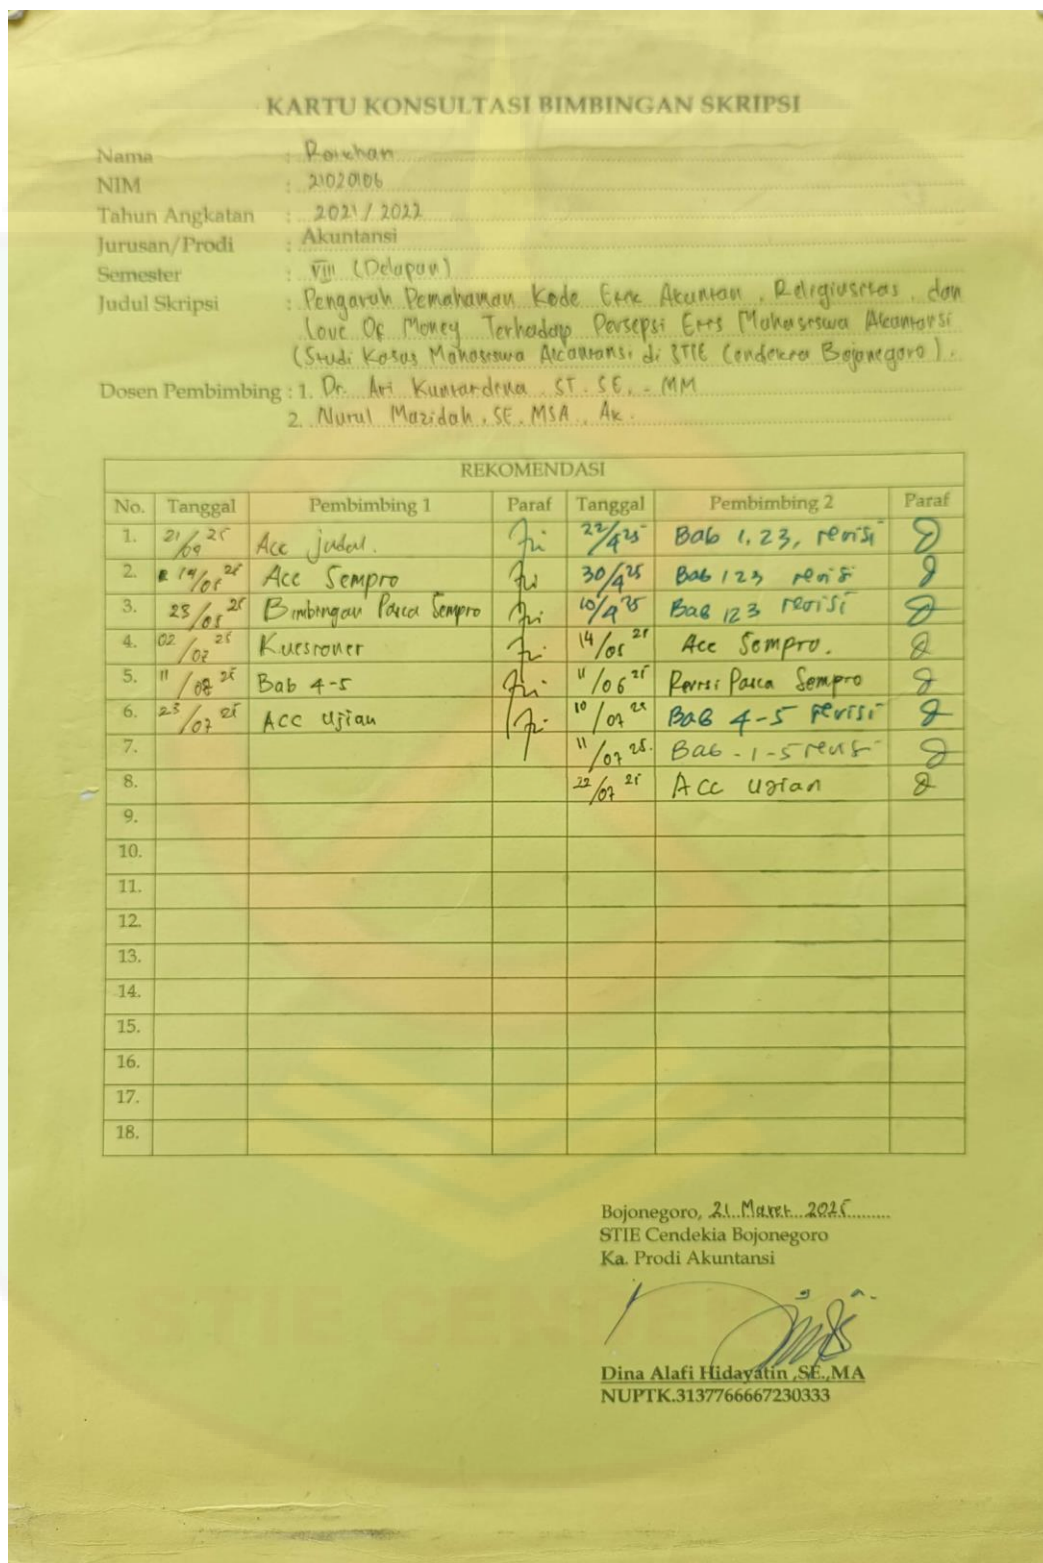 KARTU KONSULTASI BIMBINGAN SKRIPSI
Nama : Roikhan
NIM : 21020106
Tahun Angkatan : 2021 / 2022
Jurusan/Prodi : Akuntansi
Semester : VIII (Delapan)
Judul Skripsi : Pengaruh Pemahaman Kode Etik Akuntan, Religiusitas, dan
Love Of Money Terhadap Persepsi Etis Mahasiswa Akuntansi
(Studi Kasus Mahasiswa Akuntansi di STIE Cendekia Bojonegoro).
Dosen Pembimbing : 1. Dr. Ari Kuntardina. ST. SE., MM
2. Nurul Mazidah, SE, MSA., Ak.
REKOMENDASI
No. Tanggal Pembimbing 1 Paraf Tanggal Pembimbing 2 Paraf
1. Acc judul. 22/4 25 Bab 1, 2 3, revisi
2. Acc Sempro 30/4 25 Bab 1 2 3 revisi
3. 23/05 25 Bimbingan Pasca Sempro Bab 1 2 3 revisi
4. 02/07 25 Kuesioner 14/05 25 Acc Sempro.
5. Bab 4-5 11/06 25 Revisi Pasca Sempro
6. 23/07 25 Acc Ujian 10/07 25 Bab 4-5 revisi
7. 11/07 25. Bab - 1-5 revisi
8. 22/07 25 Acc Ujian
9.
10.
11.
12.
13.
14.
15.
16.
17.
18.
Bojonegoro, 21 Maret 2025
STIE Cendekia Bojonegoro
Ka. Prodi Akuntansi
Dina Alafi Hidayatin ,SE.,MA
NUPTK.3137766667230333